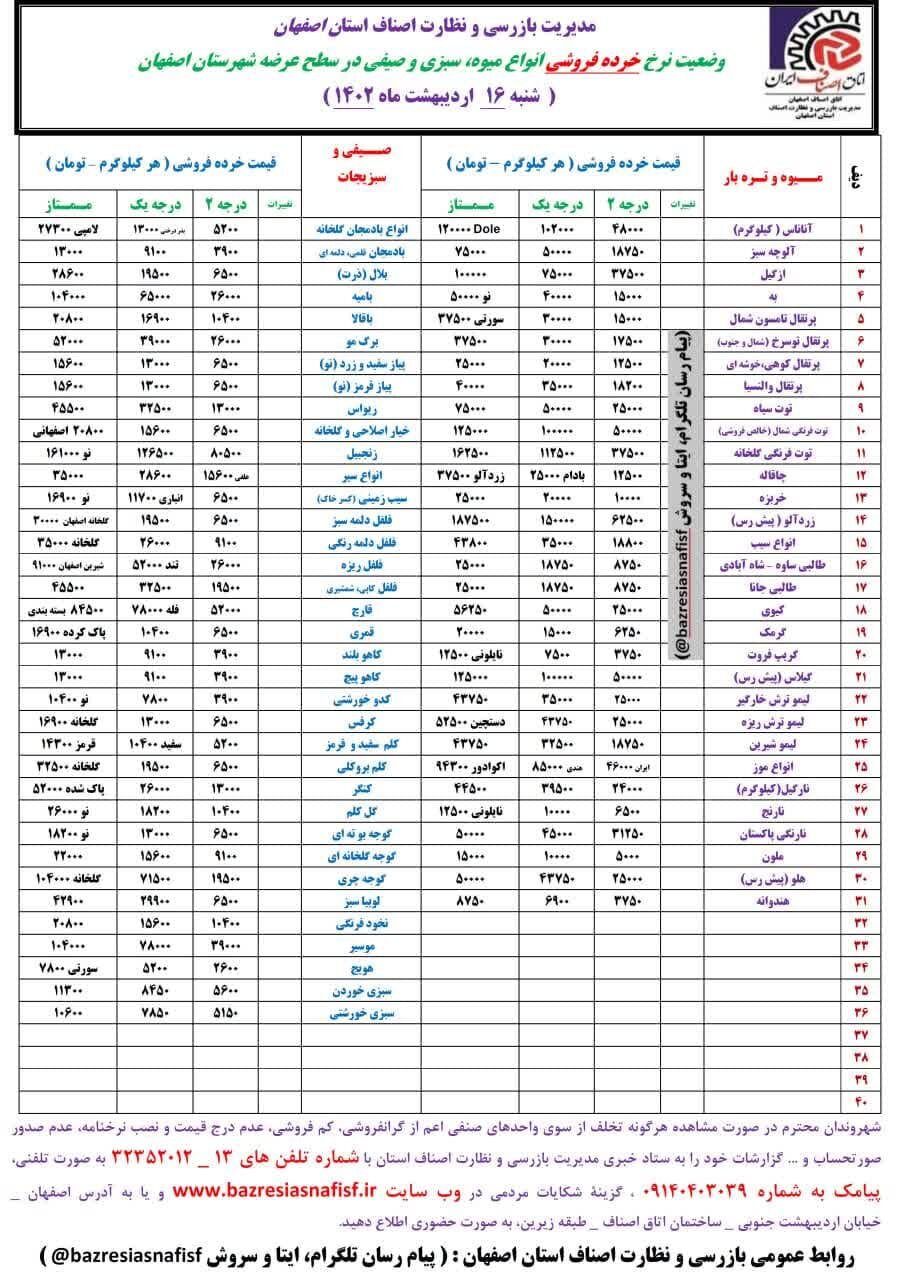 اتاق اصناف ایران
اتاق اصناف اصفهان
مدیریت بازرسی و نظارت اصناف
استان اصفهان
مدیریت بازرسی و نظارت اصناف استان اصفهان
وضعیت نرخ خرده فروشی انواع میوه، سبزی و صیفی در سطح عرضه شهرستان اصفهان
( شنبه ۱۶ اردیبهشت ماه ۱۴۰۲ )
ردیف میوه و تره بار قیمت خرده فروشی ( هر کیلوگرم – تومان ) صیفی و سبزیجات قیمت خرده فروشی ( هر کیلوگرم - تومان )
تغییرات درجه ۲ درجه یک ممتاز تغییرات درجه ۲ درجه یک ممتاز
۱ آناناس ( کیلوگرم) ۴۸۰۰۰ ۱۰۲۰۰۰ Dole ۱۲۰۰۰۰ انواع بادمجان گلخانه ۵۲۰۰ بندرعباس ۱۳۰۰۰ لامپی ۲۷۳۰۰
۲ آلوچه سبز ۱۸۷۵۰ ۵۰۰۰۰ ۷۵۰۰۰ بادمجان قلمی، دلمه ای ۳۹۰۰ ۹۱۰۰ ۱۳۰۰۰
۳ ازگیل ۳۷۵۰۰ ۷۵۰۰۰ ۱۰۰۰۰۰ بلال (ذرت) ۶۵۰۰ ۱۹۵۰۰ ۲۸۶۰۰
۴ به ۱۵۰۰۰ ۴۰۰۰۰ نو ۵۰۰۰۰ بامیه ۲۶۰۰۰ ۶۵۰۰۰ ۱۰۴۰۰۰
۵ پرتقال تامسون شمال ۱۵۰۰۰ ۳۰۰۰۰ سورتی ۳۷۵۰۰ باقالا ۱۰۴۰۰ ۱۶۹۰۰ ۲۰۸۰۰
۶ پرتقال توسرخ (شمال و جنوب) ۱۷۵۰۰ ۳۰۰۰۰ ۳۷۵۰۰ برگ مو ۲۶۰۰۰ ۳۹۰۰۰ ۵۲۰۰۰
۷ پرتقال کوهی،خوشه ای ۱۲۵۰۰ ۲۰۰۰۰ ۲۵۰۰۰ پیاز سفید و زرد (نو) ۶۵۰۰ ۱۳۰۰۰ ۱۵۶۰۰
۸ پرتقال والنسیا ۱۸۲۰۰ ۳۵۰۰۰ ۴۰۰۰۰ پیاز قرمز (نو) ۶۵۰۰ ۱۳۰۰۰ ۱۵۶۰۰
۹ توت سیاه ۲۵۰۰۰ ۵۰۰۰۰ ۷۵۰۰۰ ریواس ۱۳۰۰۰ ۳۲۵۰۰ ۴۵۵۰۰
۱۰ توت فرنگی شمال (خالص فروشی) ۵۰۰۰۰ ۱۰۰۰۰۰ ۱۲۵۰۰۰ خیار اصلاحی و گلخانه ۶۵۰۰ ۱۵۶۰۰ ۲۰۸۰۰ اصفهانی
۱۱ توت فرنگی گلخانه ۳۷۵۰۰ ۱۱۲۵۰۰ ۱۶۲۵۰۰ زنجبیل ۸۰۵۰۰ ۱۲۶۵۰۰ نو ۱۶۱۰۰۰
۱۲ چاقاله ۱۲۵۰۰ بادام ۲۵۰۰۰ زردآلو ۳۷۵۰۰ انواع سیر ۱۵۶۰۰ ۲۸۶۰۰ ۳۵۰۰۰
۱۳ خربزه ۱۰۰۰۰ ۲۰۰۰۰ ۲۵۰۰۰ سیب زمینی (کسر خاک) ۶۵۰۰ انباری ۱۱۷۰۰ نو ۱۶۹۰۰
۱۴ زردآلو ( پیش رس) ۶۲۵۰۰ ۱۵۰۰۰۰ ۱۸۷۵۰۰ فلفل دلمه سبز ۶۵۰۰ ۱۹۵۰۰ گلخانه اصفهان ۳۰۰۰۰
۱۵ انواع سیب ۱۸۸۰۰ ۳۵۰۰۰ ۴۳۸۰۰ فلفل دلمه رنگی ۹۱۰۰ ۲۶۰۰۰ گلخانه ۳۵۰۰۰
۱۶ طالبی ساوه - شاه آبادی ۸۷۵۰ ۱۸۷۵۰ ۲۵۰۰۰ فلفل ریزه ۲۶۰۰۰ تند ۵۲۰۰۰ شیرین اصفهان ۹۱۰۰۰
۱۷ طالبی جانا ۸۷۵۰ ۱۸۷۵۰ ۲۵۰۰۰ فلفل کاپی، شمشیری ۱۹۵۰۰ ۳۲۵۰۰ ۴۵۵۰۰
۱۸ کیوی ۲۵۰۰۰ ۵۰۰۰۰ ۵۶۲۵۰ قارچ ۵۲۰۰۰ فله ۷۸۰۰۰ ۸۴۵۰۰ بسته بندی
۱۹ گرمک ۶۲۵۰ ۱۵۰۰۰ ۲۰۰۰۰ قمری ۶۵۰۰ ۱۰۴۰۰ پاک کرده ۱۶۹۰۰
۲۰ گریپ فروت ۳۷۵۰ ۷۵۰۰ نایلونی ۱۲۵۰۰ کاهو بلند ۳۹۰۰ ۹۱۰۰ ۱۳۰۰۰
۲۱ گیلاس (پیش رس) ۵۰۰۰۰ ۱۰۰۰۰۰ ۱۲۵۰۰۰ کاهو پیچ ۳۹۰۰ ۹۱۰۰ ۱۳۰۰۰
۲۲ لیمو ترش خارگیر ۲۵۰۰۰ ۳۵۰۰۰ ۴۳۷۵۰ کدو خورشتی ۳۹۰۰ ۷۸۰۰ نو ۱۰۴۰۰
۲۳ لیمو ترش ریزه ۲۵۰۰۰ ۴۳۷۵۰ دستچین ۵۲۵۰۰ کرفس ۶۵۰۰ ۱۳۰۰۰ گلخانه ۱۶۹۰۰
۲۴ لیمو شیرین ۱۸۷۵۰ ۳۲۵۰۰ ۴۳۷۵۰ کلم سفید و قرمز ۵۲۰۰ سفید ۱۰۴۰۰ قرمز ۱۴۳۰۰
۲۵ انواع موز ایران ۴۶۰۰۰ هندی ۸۵۰۰۰ اکوادور ۹۴۳۰۰ کلم بروکلی ۶۵۰۰ ۱۹۵۰۰ گلخانه ۳۲۵۰۰
۲۶ نارگیل(کیلوگرم) ۲۴۰۰۰ ۳۹۵۰۰ ۴۴۵۰۰ کنگر ۱۳۰۰۰ ۲۶۰۰۰ پاک شده ۵۲۰۰۰
۲۷ نارنج ۶۵۰۰ ۱۰۰۰۰ نایلونی ۱۲۵۰۰ گل کلم ۱۰۴۰۰ ۱۸۲۰۰ نو ۲۶۰۰۰
۲۸ نارنگی پاکستان ۳۱۲۵۰ ۴۵۰۰۰ ۵۰۰۰۰ گوجه بوته ای ۶۵۰۰ ۱۳۰۰۰ نو ۱۸۲۰۰
۲۹ ملون ۵۰۰۰ ۱۰۰۰۰ ۱۵۰۰۰ گوجه گلخانه ای ۹۱۰۰ ۱۵۶۰۰ ۲۲۰۰۰
۳۰ هلو (پیش رس) ۲۵۰۰۰ ۴۳۷۵۰ ۵۰۰۰۰ گوجه چری ۱۹۵۰۰ ۷۱۵۰۰ گلخانه ۱۰۴۰۰۰
۳۱ هندوانه ۳۷۵۰ ۶۹۰۰ ۸۷۵۰ لوبیا سبز ۶۵۰۰ ۲۹۹۰۰ ۴۲۹۰۰
۳۲ نخود فرنگی ۱۰۴۰۰ ۱۵۶۰۰ ۲۰۸۰۰
۳۳ موسیر ۳۹۰۰۰ ۷۸۰۰۰ ۱۰۴۰۰۰
۳۴ هویج ۲۶۰۰ ۵۲۰۰ سورتی ۷۸۰۰
۳۵ سبزی خوردن ۵۶۰۰ ۸۴۵۰ ۱۱۳۰۰
۳۶ سبزی خورشتی ۵۱۵۰ ۷۸۵۰ ۱۰۶۰۰
۳۷
۳۸
۳۹
۴۰
(پیام رسان تلگرام، ایتا و سروش bazresiasnafisf@)
شهروندان محترم در صورت مشاهده هرگونه تخلف از سوی واحدهای صنفی اعم از گرانفروشی، کم فروشی، عدم درج قیمت و نصب نرخنامه، عدم صدور
صورتحساب و ... گزارشات خود را به ستاد خبری مدیریت بازرسی و نظارت اصناف استان با شماره تلفن های ۱۳ _ ۳۲۳۵۲۰۱۲ به صورت تلفنی،
پیامک به شماره ۰۹۱۴۰۴۰۳۰۳۹ ، گزینهٔ شکایات مردمی در وب سایت www.bazresiasnafisf.ir و یا به آدرس اصفهان _
خیابان اردیبهشت جنوبی _ ساختمان اتاق اصناف _ طبقه زیرین، به صورت حضوری اطلاع دهید.
روابط عمومی بازرسی و نظارت اصناف استان اصفهان : ( پیام رسان تلگرام، ایتا و سروش bazresiasnafisf@ )